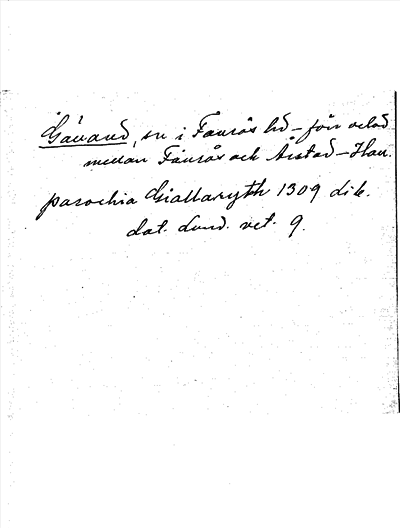 Gällared, sn i Faurås hd – förr delad
mellan Faurås och Årstad – Hall.
parochia Giallaryth 1309 lib.
dat. Lund. vet. 9.